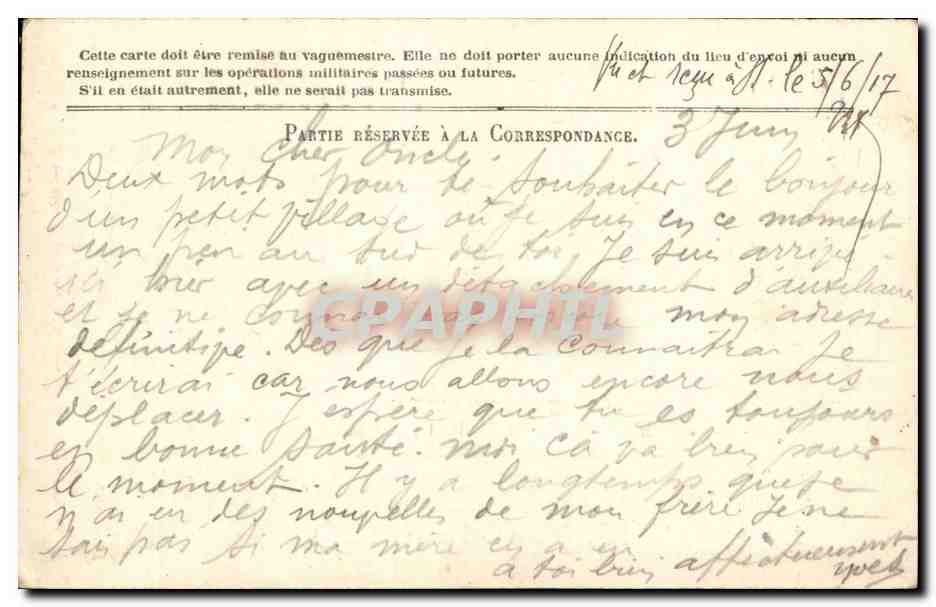 Cette carte doit être remise au vaguemestre. Elle ne doit porter aucune indication du lieu d'envoi ni aucun
renseignement sur les opérations militaires passées ou futures.
S'il en était autrement, elle ne serait pas transmise.
Vu et reçu à le 5/6/17
PARTIE RÉSERVÉE À LA CORRESPONDANCE.
3 Juin
Mon cher Oncle
Deux mots pour te souhaiter le bonjour
d'un petit village où je suis en ce moment
un peu au sud de toi. Je suis arrivé
ici hier avec un détachement d'auxiliaires
et je ne connais pas encore mon adresse
définitive. Dès que je la connaitrai je
t'écrirai car nous allons encore nous
déplacer. J'espère que tu es toujours
en bonne santé. moi ça va bien pour
le moment. Il y a longtemps que je
n'ai eu des nouvelles de mon frère Je ne
sais pas si ma mère en a eu
a toi bien affectueusement
CPAPHIL